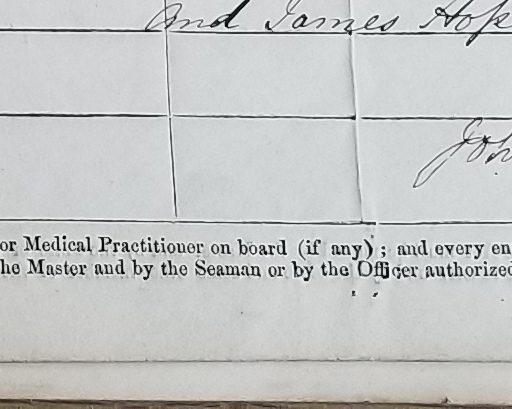 and James Hop
Joh
or Medical Practitioner on board (if any) ; and every en
he Master and by the Seaman or by the Officer authorized